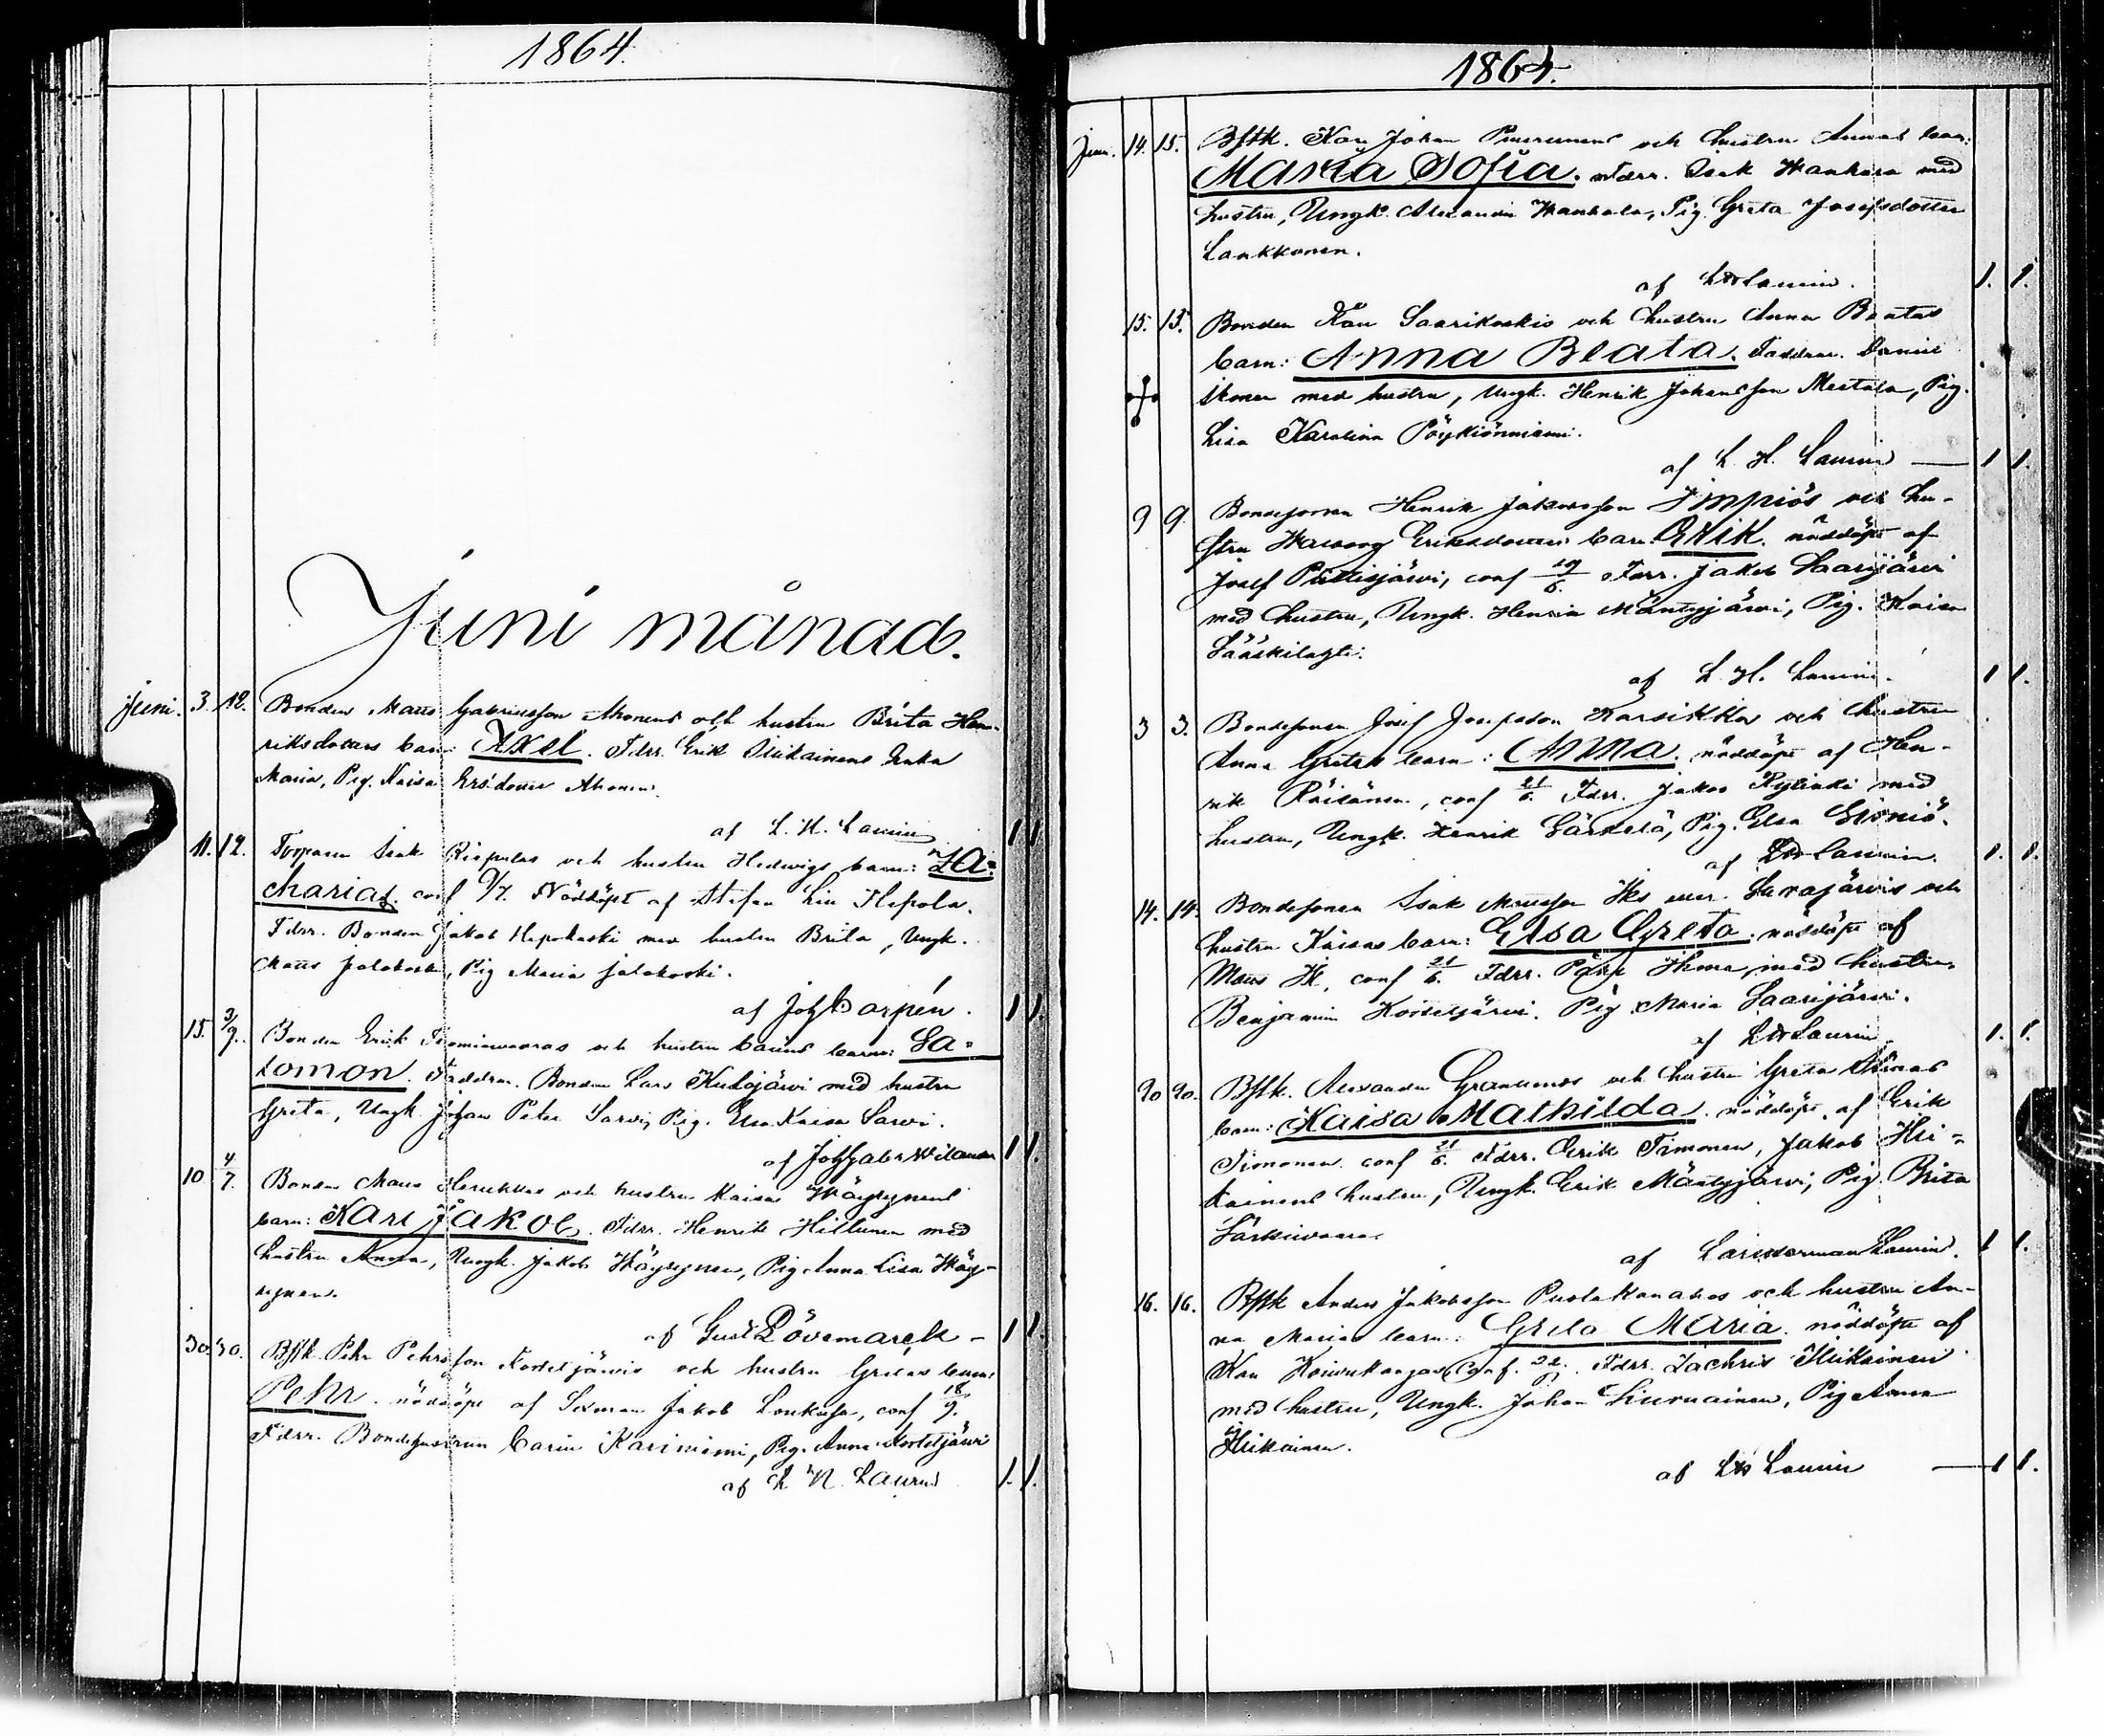 1864.
Juni månad.
Juni. 3. 12. Bonden Matts Gabrielsson Ahonens och hustru Brita Hen-
riksdotters barn: Axel. Fdrr. Erik Oikainens Enka
Maria, Pig. Kaisa Ersdotter Ahonen.
af L. H. Laurin 1 1
11. 12. Torparen Isak Rispulas och hustru Hedwigs barn: Za=
charias. conf 9/7. Nöddöpt af Stefan Hepola.
Fdrr. Bonden Jakob Hepokoski med hustru Brita, Ungk.
Matts Jalokoski, Pig Maria Jalokoski.
af Joh Carpén. 1 1.
15. 3/9. Bonden Erik och hustru Carins barn: Sa=
lomon. Faddrar. Bonden Lars Kulojärwi med hustru
Greta, Ungk. Johan Peter Sarwi, Pig. Elsa Kaisa Sarwi.
af Joh Gabr Wilander 1 1.
10 4/7. Bonden Matts och hustru Kaisa Wäyrynens
barn: Karl Jakob. Fdrr. Henrik Hiltunen med
hustru Anna, Ungk. Jakob Wäyrynen, Pig. Anna Lisa Wäy-
rynen.
af Gust Dövemarck - 1 1.
30. 30. Bfsk. Pehr Pehrsson Kortetjärwis och hustru Gretas barn:
Pehr. nöddöpt af Sexman Jakob Lonkuja, conf 18/9.
Fdrr. Bondehustrun Carin Kariniemi, Pig. Anna Kortetjärwi
af L H. Laurin 1. 1.
1864.
Juni. 14. 15. Bfsk. Karl Johan och hustru Annas barn:
Maria Sofia. Fdrr. Isak Wankara med
hustru, Ungk. Alexander Wankala, Pig. Greta Josefsdotter
Laukkonen.
af LH Laurin. 1. 1.
15. 15. Bonden Saarikoskis och hustru Anna Beatas
barn: Anna Beata. Faddrar. Daniel
Ikonen med hustru, Ungk. Henrik Johansson Mestala, Pig.
Lisa Karolina Pöykiöniemi.
af L. H. Laurin — 1 1.
9 9 Bondesonen Henrik Jakobsson Impiös och hu-
stru Walborg Eriksdotters barn: Erik. nöddöpt af
Josef Puttisjärwi, conf 19/6. Fdrr. Jakob Saarijärwi
med hustru, Ungk. Henrik Mäntyjärwi, Pig. Kaisa
Sääskilahti.
af L. H. Laurin. 1 1.
3 3. Bondesonen Josef Josefsson Karsikkos och hustru
Anna Gretas barn: Anna. nöddöpt af Hen-
rik Räisänen, conf 21/6. Fdrr. Jakob med
hustru, Ungk. Henrik Särkelä, Pig. Elsa
af LH Laurin. 1. 1.
14. 14. Bondesonen Isak Mattsson Iks eller Sarajärwis och
hustru Kaisas barn: Elsa Greta. nöddöpt af
Matts Ik, conf 21/6. Fdrr. Ikonen med hustru,
Benjamin Korteljärwi. Pig Maria Saarijärwi.
af LH Laurin 1. 1.
20 20. Bfsk. Alexander Granlunds och hustru Greta Stinas
barn: Kaisa Mathilda. nöddöpt af Erik
Timonen conf 21/6. Fdrr. Erik Timonen, Jakob Hei=
kainens hustru, Ungk. Erik Mäntyjärwi, Pig. Brita
Särkiwaara
af Lars Herman Laurin. 1 1.
16. 16. Bfsk Anders Jakobsson Puolakanahos och hustru An-
na Marias barn: Greta Maria. nöddöpt af
Karl Koiwukangas Conf. Fdrr. Zachris Heikkinen
med hustru, Ungk. Johan Siurnainen, Pig Anna
Heikkinen.
af LH Laurin — 1 1.